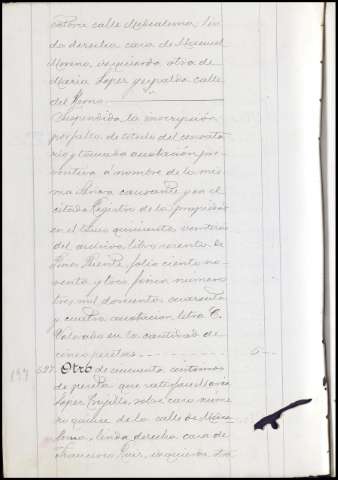 catorce calle Macalema, lin-
da derecha casa de Manuel
Moreno, izquierda otra de
Maria Lopez y espalda calle
del Horno.
Suspendida la inscripcion
por falta de titulo del censata-
rio y tomada anotacion pre-
ventiva á nombre de la mis-
ma Señora causante y en el
citado Registro de la propiedad
en el tomo quinientos
del archivo, libro sesenta de
Puente, folio ciento no-
venta y tres, finca numero
tres mil doscientos cuarenta
y cuatro anotacion letra C.
Valorado en la cantidad de
cinco pesetas. 5
527. Otro de cincuenta centimos
de peseta que satisface Maria
Lopez Trujillo, sobre casa nume-
ro quince de la calle de
linda derecha casa de
Francisco Ruiz, izquierda